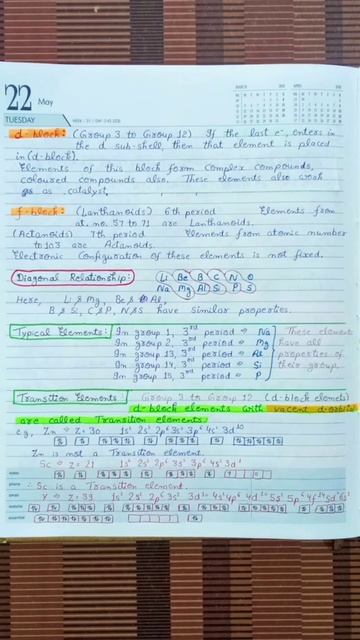 22 May
TUESDAY
d-block: (Group 3 to Group 12) If the last e⁻, enters in
the d sub-shell, then that element is placed
in (d-block).
Elements of this block form complex compounds,
coloured compounds also. These elements also work
as catalyst.
f-block: (Lanthanoids) 6th period Elements from
at. no. 57 to 71 are Lanthanoids.
(Actanoids) 7th period. Elements from atomic number
to 103 are Actanoids.
Electronic Configuration of these elements is not fixed.
Diagonal Relationship: Li Be B C N O
Na Mg Al Si P S
Here, Li & Mg, Be & Al,
B & Si, C & P, N & S have similar properties.
Typical Elements: In group 1, 3rd period ⇒ Na These element
In group 2, 3rd period ⇒ Mg have all
In group 13, 3rd period ⇒ Al properties of
In group 14, 3rd period ⇒ Si their group.
In group 15, 3rd period ⇒ P
Transition Elements: Group 3 to Group 12 (d-block elemets)
d-block elements with vacent d-orbitals
are called Transition elements.
eg, Zn ⇒ Z=30 1s² 2s² 2p⁶ 3s² 3p⁶ 4s² 3d¹⁰
Zn is not a Transition element.
Sc ⇒ Z=21 1s² 2s² 2p⁶ 3s² 3p⁶ 4s² 3d¹
∴ Sc is a Transition element.